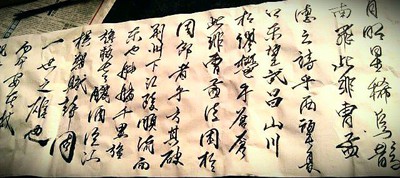 月明星稀烏鵲
南飛此非曹孟
德之詩乎西望夏
口東望武昌山川
相繆鬱乎蒼蒼
此非曹孟德困於
周郎者乎方其破
荊州下江陵順流而
東也舳艫千里旌
旗蔽空釃酒臨江
橫槊賦詩固
一世之雄也
而今安在哉